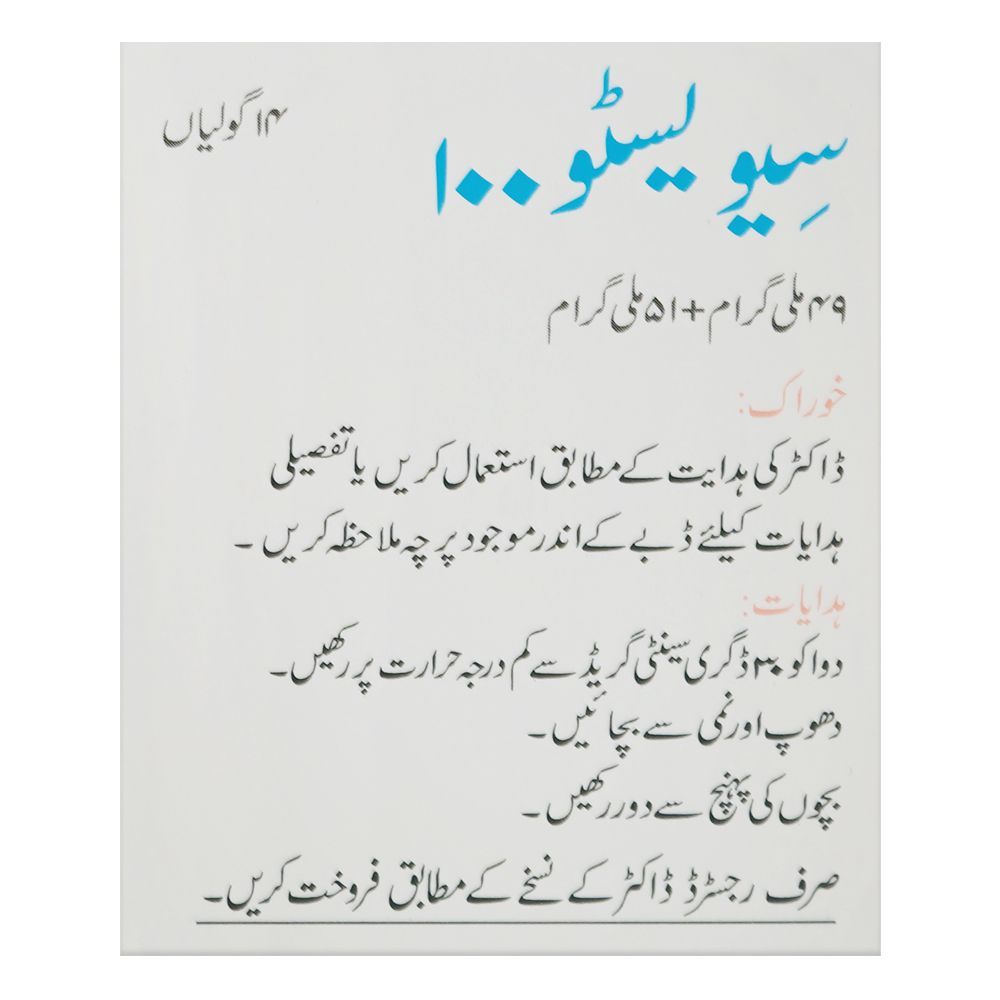 سِیو لیسٹو ۱۰۰
۱۴ گولیاں
۴۹ ملی گرام + ۵۱ ملی گرام
خوراک:
ڈاکٹر کی ہدایت کے مطابق استعمال کریں یا تفصیلی
ہدایات کیلئے ڈبے کے اندر موجود پرچہ ملاحظہ کریں۔
ہدایات:
دوا کو ۳۰ ڈگری سینٹی گریڈ سے کم درجہ حرارت پر رکھیں۔
دھوپ اور نمی سے بچائیں۔
بچوں کی پہنچ سے دور رکھیں۔
صرف رجسٹرڈ ڈاکٹر کے نسخے کے مطابق فروخت کریں۔